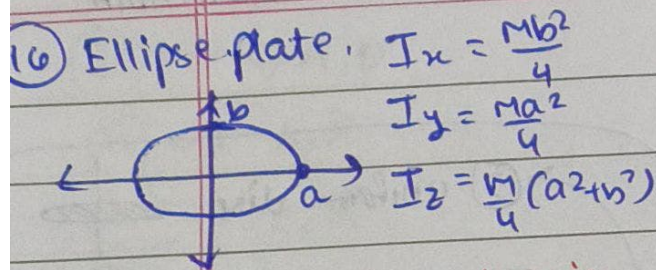 16 Ellipse plate. Ix = Mb²/4
b
Iy = Ma²/4
a
Iz = M/4 (a²+b²)